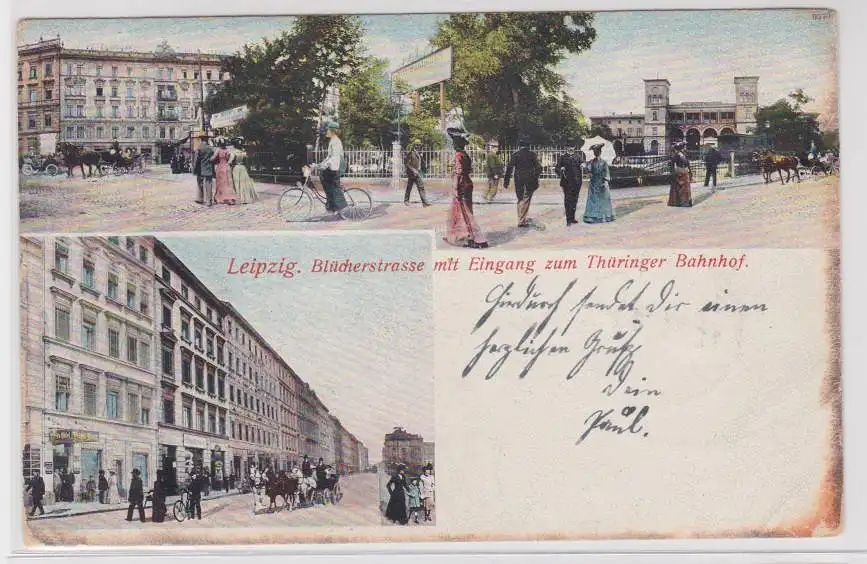 Leipzig. Blücherstrasse mit Eingang zum Thüringer Bahnhof.
Hierdurch sendet Dir einen
herzlichen Gruß
Dein
Paul.